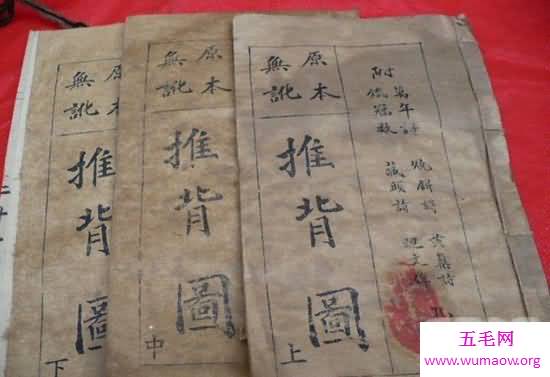 附
萬年詩
燒餅詩
藏頭詩
原本
無訛
推背圖
上
原本
無訛
推背圖
中
原本
無訛
推背圖
下
五毛网
www.wumaow.org